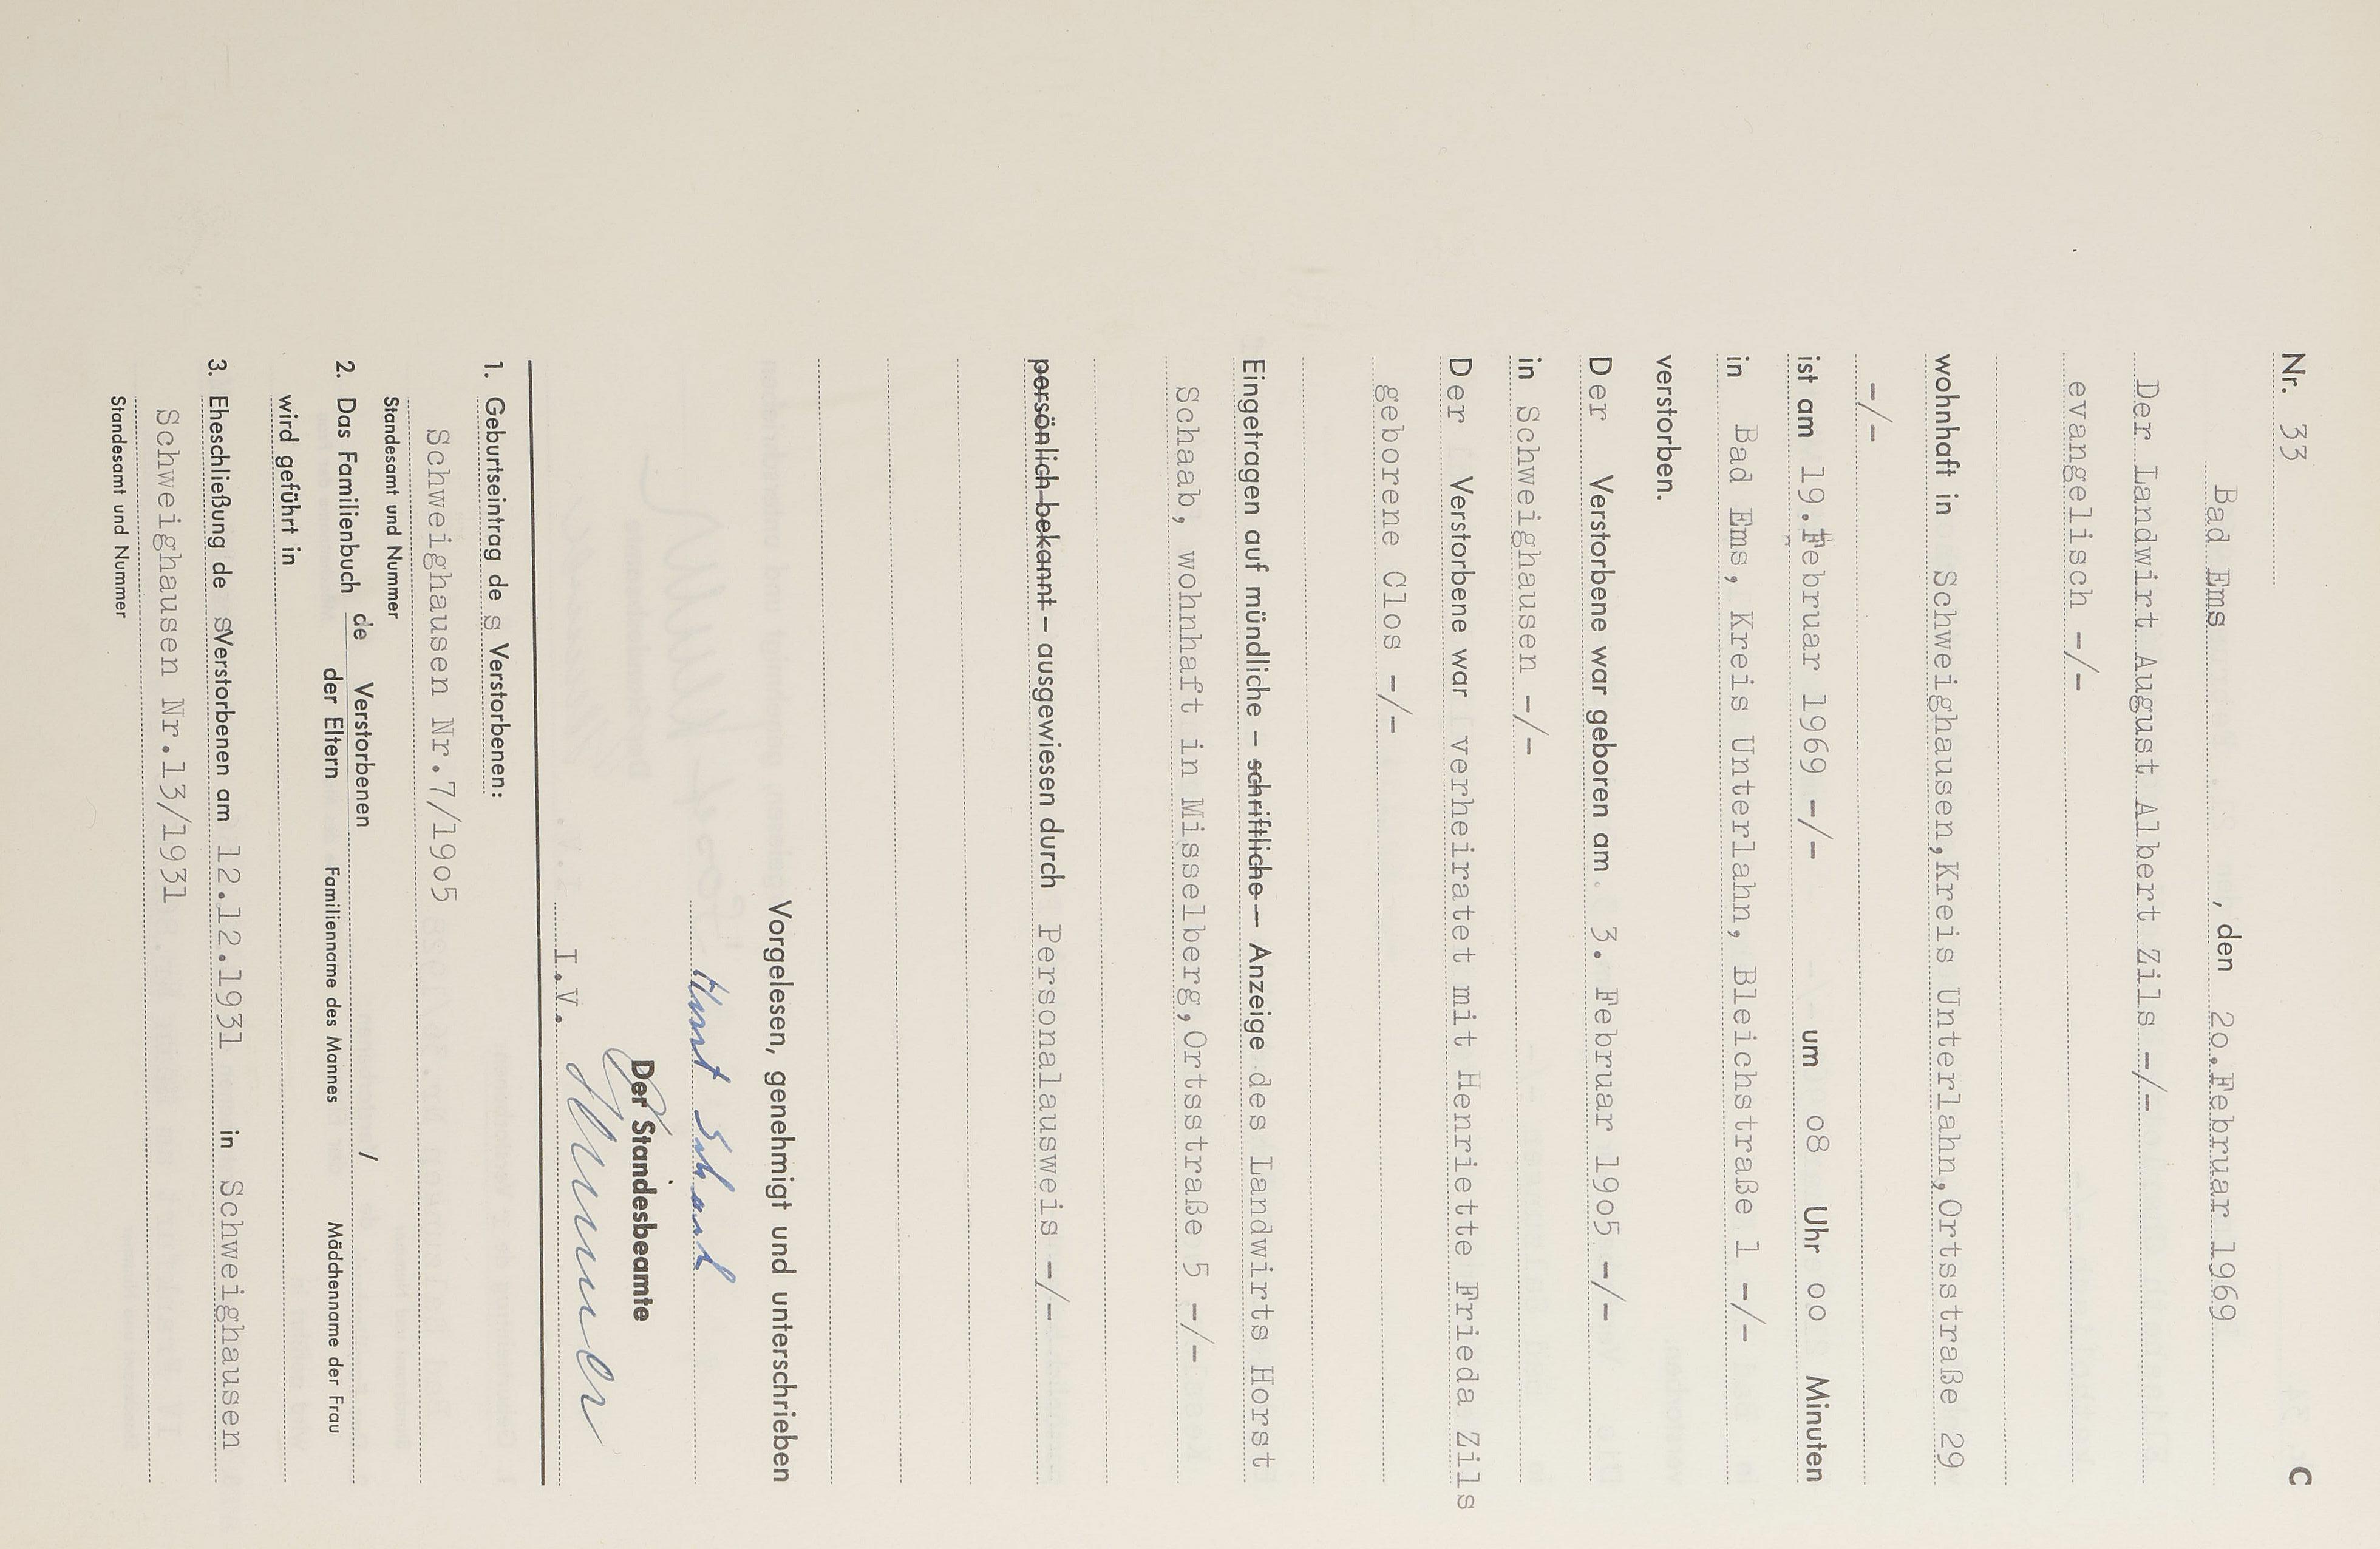 Nr. 33 C
Bad Ems, den 2o.Februar 1969
Der Landwirt August Albert Zils -/-
evangelisch -/-
wohnhaft in Schweighausen,Kreis Unterlahn,Ortsstraße 29
-/-
ist am 19.Februar 1969 -/- um o8 Uhr oo Minuten
in Bad Ems, Kreis Unterlahn, Bleichstraße 1 -/-
verstorben.
Der Verstorbene war geboren am 3. Februar 19o5 -/-
in Schweighausen -/-
Der Verstorbene war verheiratet mit Henriette Frieda Zils
geborene Clos -/-
Eingetragen auf mündliche – schriftliche – Anzeige des Landwirts Horst
Schaab, wohnhaft in Misselberg,Ortsstraße 5 -/-
persönlich bekannt – ausgewiesen durch Personalausweis -/-
Vorgelesen, genehmigt und unterschrieben
Horst Schaab
Der Standesbeamte
I.V.
1. Geburtseintrag de s Verstorbenen:
Schweighausen Nr.7/19o5
Standesamt und Nummer
2. Das Familienbuch de Verstorbenen /
der Eltern Familienname des Mannes Mädchenname der Frau
wird geführt in
3. Eheschließung de sVerstorbenen am 12.12.1931 in Schweighausen
Schweighausen Nr.13/1931
Standesamt und Nummer